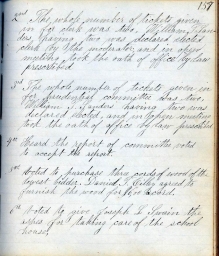 157
2nd The whole number of tickets given
in for clerk was two. William
Sanders, having two was declared elected
clerk by the moderator, and in open
meeting took the oath of office by law
prescribed.
3rd The whole number of tickets given in
for prudential committee was two.
William Sanders having two was
declared elected, and in open meeting
took the oath of office by law prescribed.
4th Heard the report of committee voted
to accept the report.
5th Voted to purchase three cords of wood of the
lowest bidder. Daniel J. agreed to
furnish the wood for a cord.
6th Voted to give Joseph L.
for taking care of the school
house.